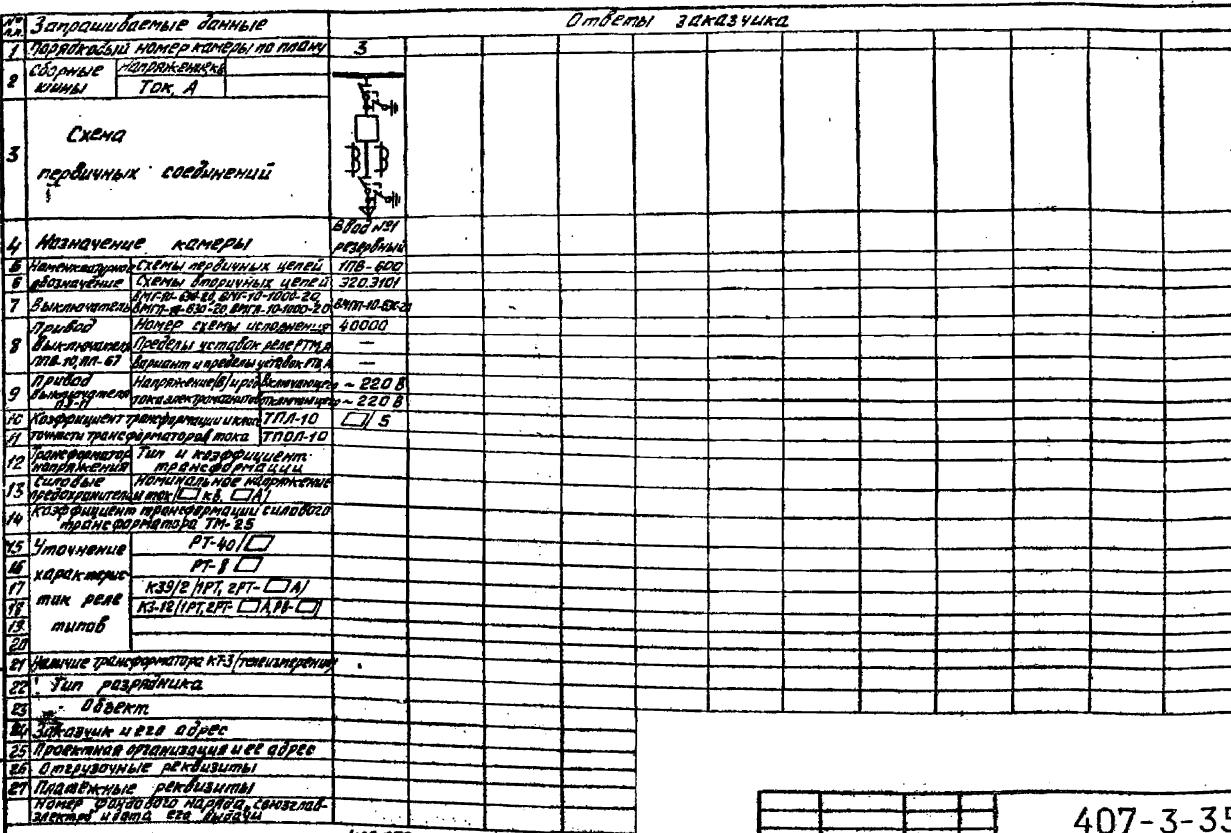 №№ п.п. Запрашиваемые данные Ответы заказчика
1 Порядковый номер камеры по плану 3
2 Сборные шины Напряжение, кВ
Ток, А
3 Схема первичных соединений
4 Назначение камеры Ввод №1 резервный
5 Номенклатурное Схемы первичных цепей 17В-600
6 обозначение Схемы вторичных цепей 320.3101
7 Выключатель ВМГ-10-630-20, ВМГ-10-1000-20,
ВМГП-10-630-20, ВМГП-10-1000-20 ВМПП-10-630-20
8 Привод выключателя ППВ-10, ПП-67 Номер схемы исполнения 40000
Пределы уставок реле РТМ, А —
Вариант и пределы уставок РТВ, А —
9 Привод выключателя ПЭ-11 Напряжение (В) и род включающего ~ 220 В
тока электромагнитов отключающего ~ 220 В
10 Коэффициент трансформации и класс ТПЛ-10 /5
11 точности трансформаторов тока ТПОЛ-10
12 Трансформатор напряжения Тип и коэффициент трансформации
13 Силовые предохранители Номинальное напряжение
и ток ( кВ, А)
14 Коэффициент трансформации силового
трансформатора ТМ-25
15 Уточнение РТ-40/
16 характерис- РТ-8
17 тик реле КЗ9/2 (1РТ, 2РТ- А)
18 КЗ-12 (1РТ, 2РТ- А, РВ- )
19 типов
20
21 Наличие трансформатора КТ-3 (телеизмерения)
22 Тип разрядника
23 Объект
24 Заказчик и его адрес
25 Проектная организация и ее адрес
26 Отгрузочные реквизиты
27 Платежные реквизиты
Номер фондового наряда, союзглав-
электро и дата его выдачи
407-3-35